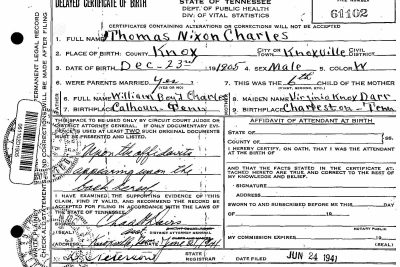 DELAYED CERTIFICATE OF BIRTH
STATE OF TENNESSEE
DEPT. OF PUBLIC HEALTH
DIV. OF VITAL STATISTICS
61162
CERTIFICATES CONTAINING ALTERATIONS OR CORRECTIONS WILL NOT BE ACCEPTED
1. FULL NAME Thomas Nixon Charles
2. PLACE OF BIRTH: COUNTY Knox CITY OR TOWN Knoxville CIVIL DISTRICT
3. DATE OF BIRTH Dec-23rd 4. SEX Male 5. COLOR W
6. WERE PARENTS MARRIED Yes (YES OR NO) 7. THIS WAS THE 6th CHILD OF THE MOTHER
6. FULL NAME William Charles 8. MAIDEN NAME Virginia Knox Darr
BIRTHPLACE Calhoun Tenn BIRTHPLACE Charleston Tenn
THIS SPACE TO BE USED ONLY BY CIRCUIT COURT JUDGE OR
DISTRICT ATTORNEY GENERAL. IF ONLY DOCUMENTARY EVIDENCE IS USED AT LEAST TWO SUCH ORIGINAL DOCUMENTS
MUST BE PRESENTED AND LISTED.
Upon the affidavits
appearing upon the
back hereof
I HAVE EXAMINED THE SUPPORTING EVIDENCE OF THIS
CLAIM, FIND IT VALID, AND RECOMMEND THE RECORD BE
ACCEPTED FOR FILING IN ACCORDANCE WITH THE LAWS
OF THE STATE OF TENNESSEE.
AFFIDAVIT OF ATTENDANT AT BIRTH
STATE OF
COUNTY OF
I HEREBY CERTIFY, ON OATH, THAT I WAS THE ATTENDANT
AT THE BIRTH OF
AND THAT THE FACTS STATED IN THE CERTIFICATE ATTACHED HERETO ARE TRUE, AND CORRECT TO THE REST OF
MY KNOWLEDGE AND BELIEF.
SIGNATURE
ADDRESS
SWORN TO AND SUBSCRIBED BEFORE ME THIS
DAY OF
NOTARY PUBLIC
MY COMMISSION EXPIRES
JUN 24 1941